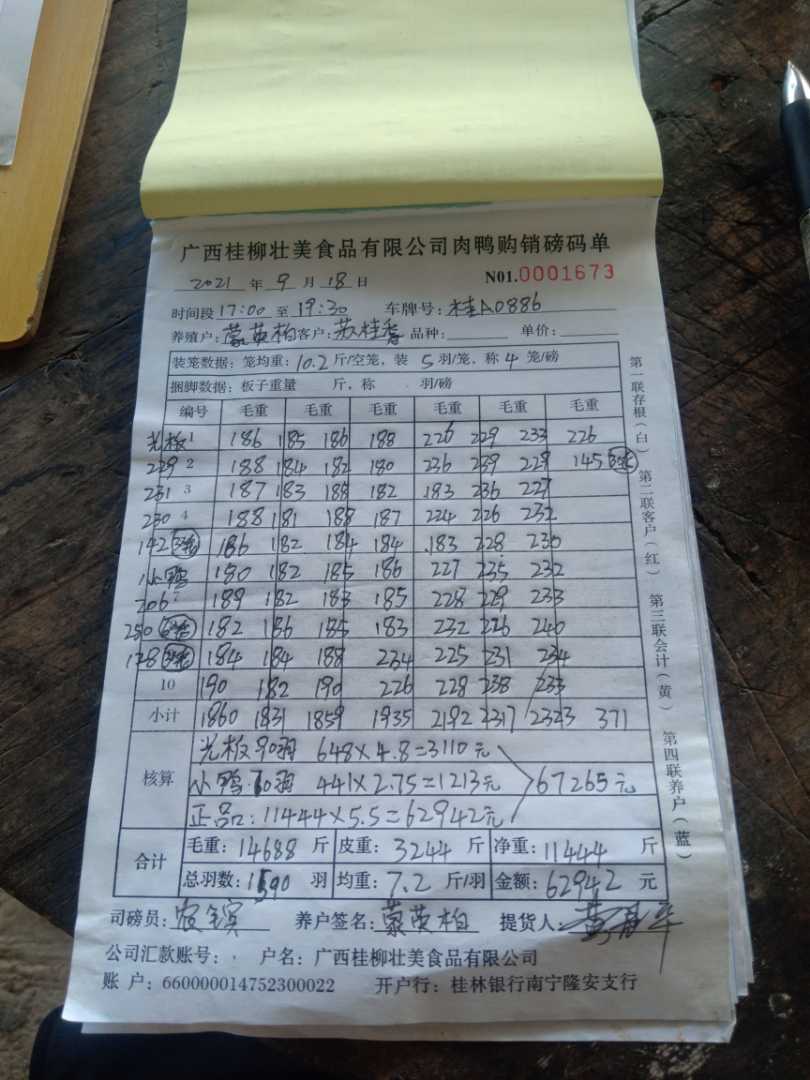 广西桂柳壮美食品有限公司肉鸭购销磅码单
2021 年 9 月 18 日 N01.0001673
时间段 17:00 至 19:30 车牌号: 桂A0886
养殖户: 蒙英柏 客户: 苏桂香 品种: 单价:
装笼数据: 笼均重: 10.2 斤/空笼, 装 5 羽/笼, 称 4 笼/磅
捆脚数据: 板子重量 斤, 称 羽/磅
编号 毛重 毛重 毛重 毛重 毛重 毛重
光板 1 186 185 186 188 226 229 233 226
229 2 188 184 182 180 236 239 229 145
231 3 187 183 188 182 183 236 227
230 4 188 181 188 187 224 226 232
142 186 182 184 184 183 228 230
小鸭 180 182 185 186 227 235 232
206 7 189 182 183 185 228 229 233
250 182 186 185 183 232 226 240
128 184 184 188 234 225 231 234
10 190 182 190 226 228 238 233
小计 1860 1831 1859 1935 2192 2317 2323 371
核算
光板 90羽 648×4.8=3110元
小鸭 60羽 441×2.75=1213元 67265元
正品: 11444×5.5=62942元
合计
毛重: 14688 斤 皮重: 3244 斤 净重: 11444 斤
总羽数: 1590 羽 均重: 7.2 斤/羽 金额: 62942 元
司磅员: 养户签名: 蒙英柏 提货人:
公司汇款账号: 户名: 广西桂柳壮美食品有限公司
账 户: 660000014752300022 开户行: 桂林银行南宁隆安支行
第一联存根(白) 第二联客户(红) 第三联会计(黄) 第四联养户(蓝)